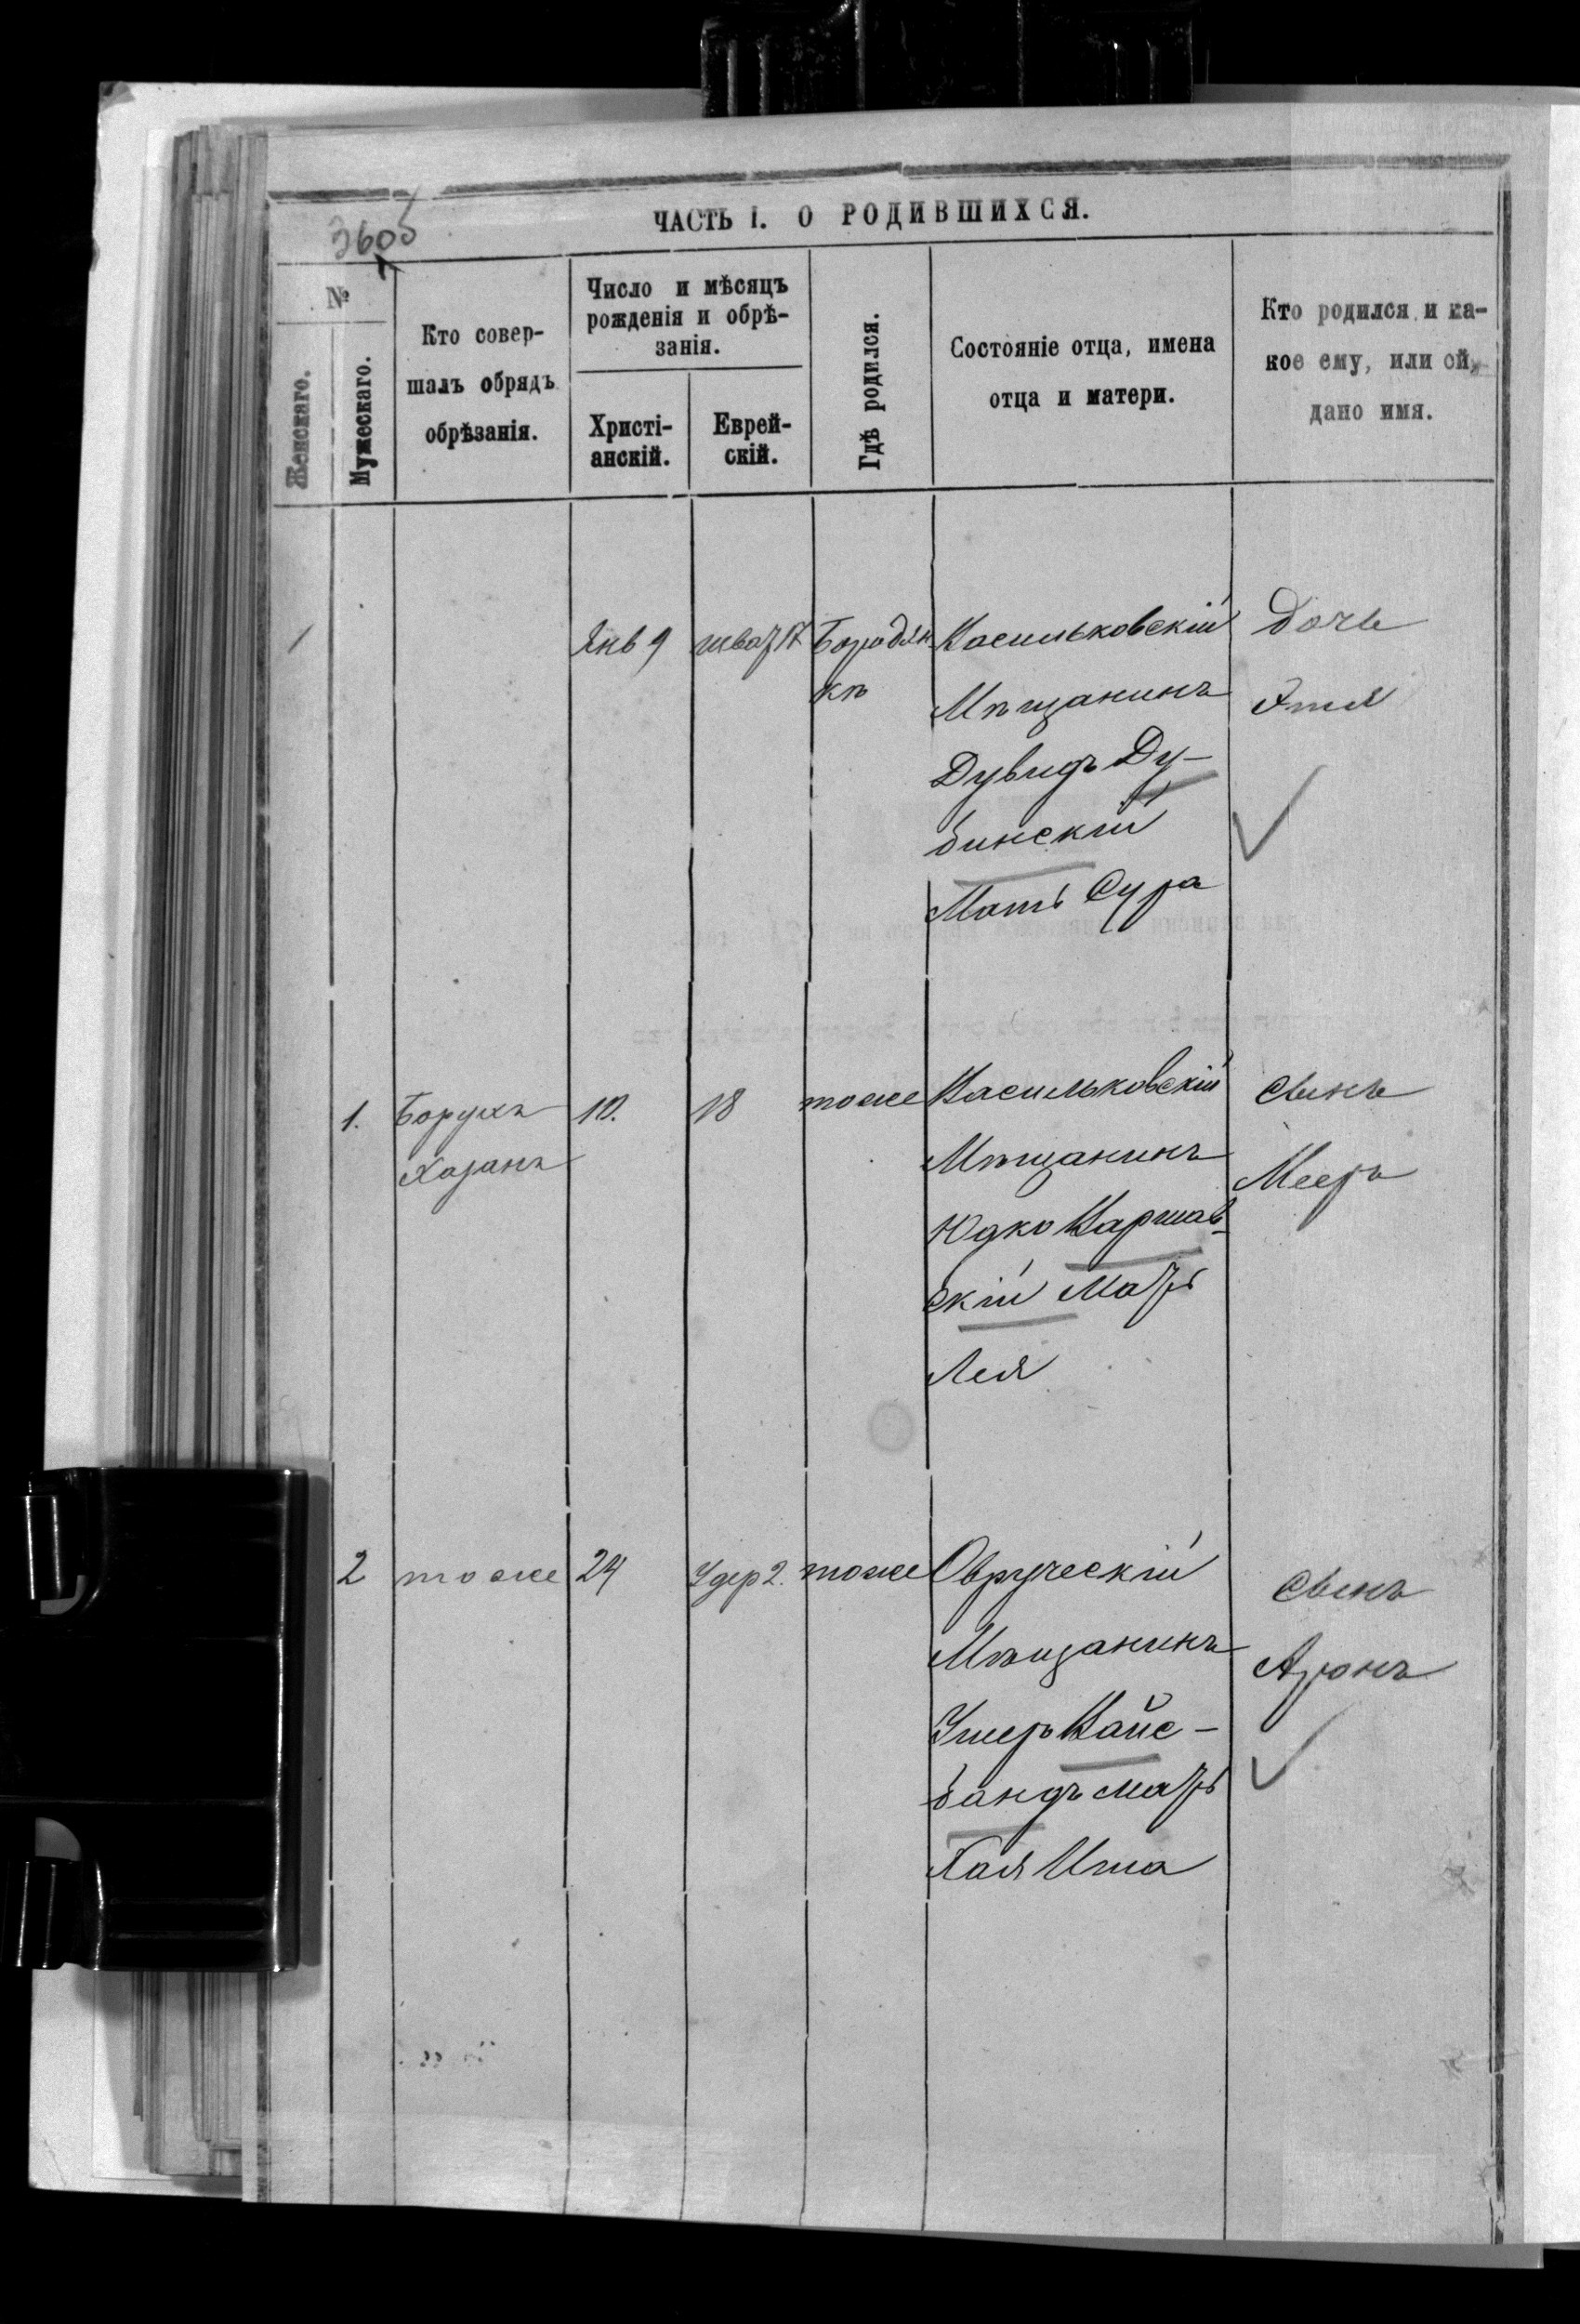 ЧАСТЬ I. О РОДИВШИХСЯ.
3605
№
Женскаго.
Мужескаго.
Кто совер-
шалъ обрядъ
обрѣзанія.
Число и мѣсяцъ
рожденія и обрѣ-
занія.
Христі-
анскій.
Еврей-
скій.
Гдѣ родился.
Состояніе отца, имена
отца и матери.
Кто родился и ка-
кое ему, или ей,
дано имя.
1
Янв 9
шват 17
Бородян
кѣ
Васильковскій
Мѣщанинъ
Дувидъ Ду-
бинскій
Мать Сура
Дочь
Этя
1.
Борухъ
Хазанъ
10.
18
тоже
Васильковскій
Мѣщанинъ
Юдко Варшав-
скій Мать
Лея
Сынъ
Мееръ
2
тоже
24
Удер 2.
тоже
Овруческій
Мѣщанинъ
Ушеръ Вайс-
бандъ мать
Хая Ита
Сынъ
Аронъ